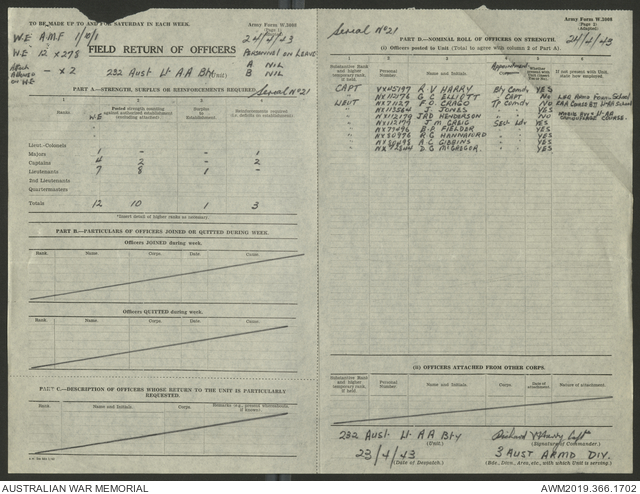 TO BE MADE UP TO AND FOR SATURDAY IN EACH WEEK.
Army Form W.3008
(Page 1)
W.E A.M.F 1/8/1
24/4/43
W.E 12 x 278
FIELD RETURN OF OFFICERS
PERSONNEL ON LEAVE
A NIL
B NIL
- x 2
232 Aust Lt AA Bty (Unit.)
Serial No 21
PART A.—STRENGTH, SURPLUS OR REINFORCEMENTS REQUIRED.
1 2 3 4
Ranks. W.E Posted strength
Lieut.-Colonels
Majors 1 - - 1
Captains 4 2 - 2
Lieutenants 7 8 1 -
2nd Lieutenants
Quartermasters
Totals 12 10 1 3
*Insert detail of higher ranks as necessary.
PART B.—PARTICULARS OF OFFICERS JOINED OR QUITTED DURING WEEK.
Officers JOINED during week.
Rank. Name. Corps. Date. Unite.
Officers QUITTED during week.
Rank. Name. Corps. Date. Unite.
PART C.—DESCRIPTION OF OFFICERS WHOSE RETURN TO THE UNIT IS PARTICULARLY
REQUESTED.
Rank. Name and Initials. Corps.
Serial No 21
Army Form W.3008
(Page 2)
(Adapted)
24/4/43
PART D.—NOMINAL ROLL OF OFFICERS ON STRENGTH.
(i) Officers posted to Unit (Total to agree with column 2 of Part A).
Substantive Rank and higher temporary rank, if held. Personal Number Name and Initials. Appointment Whether present with Unit. If not present with Unit, state how employed.
CAPT VX45197 R V HARRY Bty Comdr YES
" NX112176 G C ELLIOTT " CAPT NO
LIEUT NX71127 F O CRAGO Tp Comdr NO
" NX113564 J JONES " YES
" NX112179 JRD HENDERSON " NO
" NX112177 J M CRAIG Sect Ldr YES
" R E FIELDER YES
" NX50976 A G HANNAFORD YES
" R C GIBBINS YES
" D G McGREGOR YES
CAMOUFLAGE COURSE.
(ii) OFFICERS ATTACHED FROM OTHER CORPS.
Substantive Rank and higher temporary rank, if held. Personal Number Name and Initials. Corps. Date of attachment. Nature of attachment.
232 Aust Lt AA Bty
(Unit.)
Richard V Harry Capt
(Signature of Commander.)
23/4/43
(Date of Despatch.)
3 AUST ARMD DIV.
(Bde., Divn., Area, etc., with which Unit is serving.)
AUSTRALIAN WAR MEMORIAL
AWM2019.366.1702